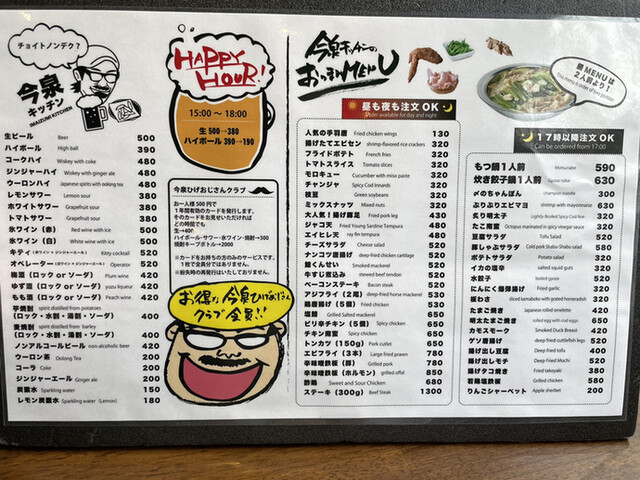 チョイトノンデク?
今泉
キッチン
IMAIZUMI KITCHEN
生ビール Beer 500
ハイボール High ball 390
コークハイ Wiskey with coke 480
ジンジャーハイ Wiskey with ginger ale 480
ウーロンハイ Japanese spirits with oolong tea 480
レモンサワー Lemon sour 380
ホワイトサワー Grapefruit sour 380
トマトサワー Grapefruit sour 380
ホワイン(赤) Red wine with ice 500
ホワイン(白) White wine with ice 500
キティ Kitty cocktail 520
オペレーター Operator 520
梅酒(ロック or ソーダ) Plum wine 420
ゆず酒(ロック or ソーダ) yuzu liqueur 420
もも酒(ロック or ソーダ) Peach wine 420
芋焼酎 spirit distilled from potatoes
(ロック・水割・湯割・ソーダ) 400
麦焼酎 spirit distilled from barley
(ロック・水割・湯割・ソーダ) 400
ノンアルコールビール non-alcoholic beer 420
ウーロン茶 Oolong Tea 200
コーラ Coke 200
ジンジャーエール Ginger ale 200
炭酸水 Sparkling water 150
レモン炭酸水 Sparkling water (Lemon) 180
HAPPY
HOUR!
15:00 〜 18:00
生 500→380
ハイボール 390→190
今泉ひげおじさんクラブ
お一人様 500円で
1年間有効のカードを発行します。
そのカードをお見せいただければ
どの時間でも
生→400
ハイボール・サワー・ホワイン・焼酎→300
焼酎キープボトル→2000
※カードをお持ちの方のみのサービスです。
1枚で全員分ではありません。
※紛失時の再発行はいたしておりません。
お得な今泉ひげおじさん
クラブ会員!!
今泉キッチンの
おつまみMENU
昼も夜も注文OK
Order available for day and night
人気の手羽唐 Fried chicken wings 130
揚げたてエビセン shrimp-flavored rice crackers 320
フライドポテト French fries 320
トマトスライス Tomato slices 320
モロキュー Cucumber with miso paste 320
チャンジャ Spicy Cod Innards 320
枝豆 Green soybeans 320
ミックスナッツ Mixed nuts 320
大人気!揚げ豚足 Fried pork leg 430
ジャコ天 Fried Young Sardine Tempura 430
エイヒレ天 ray fin tempura 480
チーズサラダ Cheese salad 520
ナンコツ唐揚げ Deep-fried cartilage 520
鯖くんせい Smoked mackerel 520
牛すじ煮込み stewed beef tendon 520
ベーコンステーキ Bacon steak 520
アジフライ(2尾) deep-fried horse mackerel 530
鶏唐揚げ(5個) Fried chicken 530
塩鯖 Grilled Salted mackerel 630
ピリ辛チキン(5個) Spicy chicken 630
チキン南蛮 Spicy chicken 630
トンカツ(150g) Pork cutlet 630
エビフライ(3本) Large fried prawn 780
辛味噌鉄板(豚) Grilled pork 680
辛味噌鉄板(ホルモン) grilled offal 650
酢鶏 Sweet and Sour Chicken 680
ステーキ(300g) Beef Steak 1300
鍋MENUは
2人前より!
This menu is order of two person
17時以降注文OK
Can be ordered from 17:00
もつ鍋1人前 Motsunabe 590
炊き餃子鍋1人前 630
〆のちゃんぽん champon noodle 300
ぷりぷりエビマヨ shrimp with mayonnaise 630
炙り明太子 Lightly Broiled Spicy Cod Roe 320
たこ南蛮 Octopus marinated in spicy vinegar sauce 320
豆腐サラダ Tofu Salad 520
豚しゃぶサラダ Cold pork Shabu-Shabu salad 580
ポテトサラダ Potato salad 320
イカの塩辛 salted squid guts 320
水餃子 boiled gyoza 520
にんにく爆弾揚げ Fried garlic 320
板わさ sliced kamaboko with grated horseradish 320
たまご焼き Japanese rolled omelette 420
明太たまご焼き rolled egg with cod eggs 690
カモスモーク Smoked Duck Breast 420
ゲソ唐揚げ deep fried cuttlefish legs 520
揚げ出し豆腐 Deep fried tofu 400
揚げ出しモチ Deep Fried Mochi 520
揚げタコ焼き Fried takoyaki 380
若鶏塩鉄板 Grilled chicken 580
りんごシャーベット Apple sherbet 200